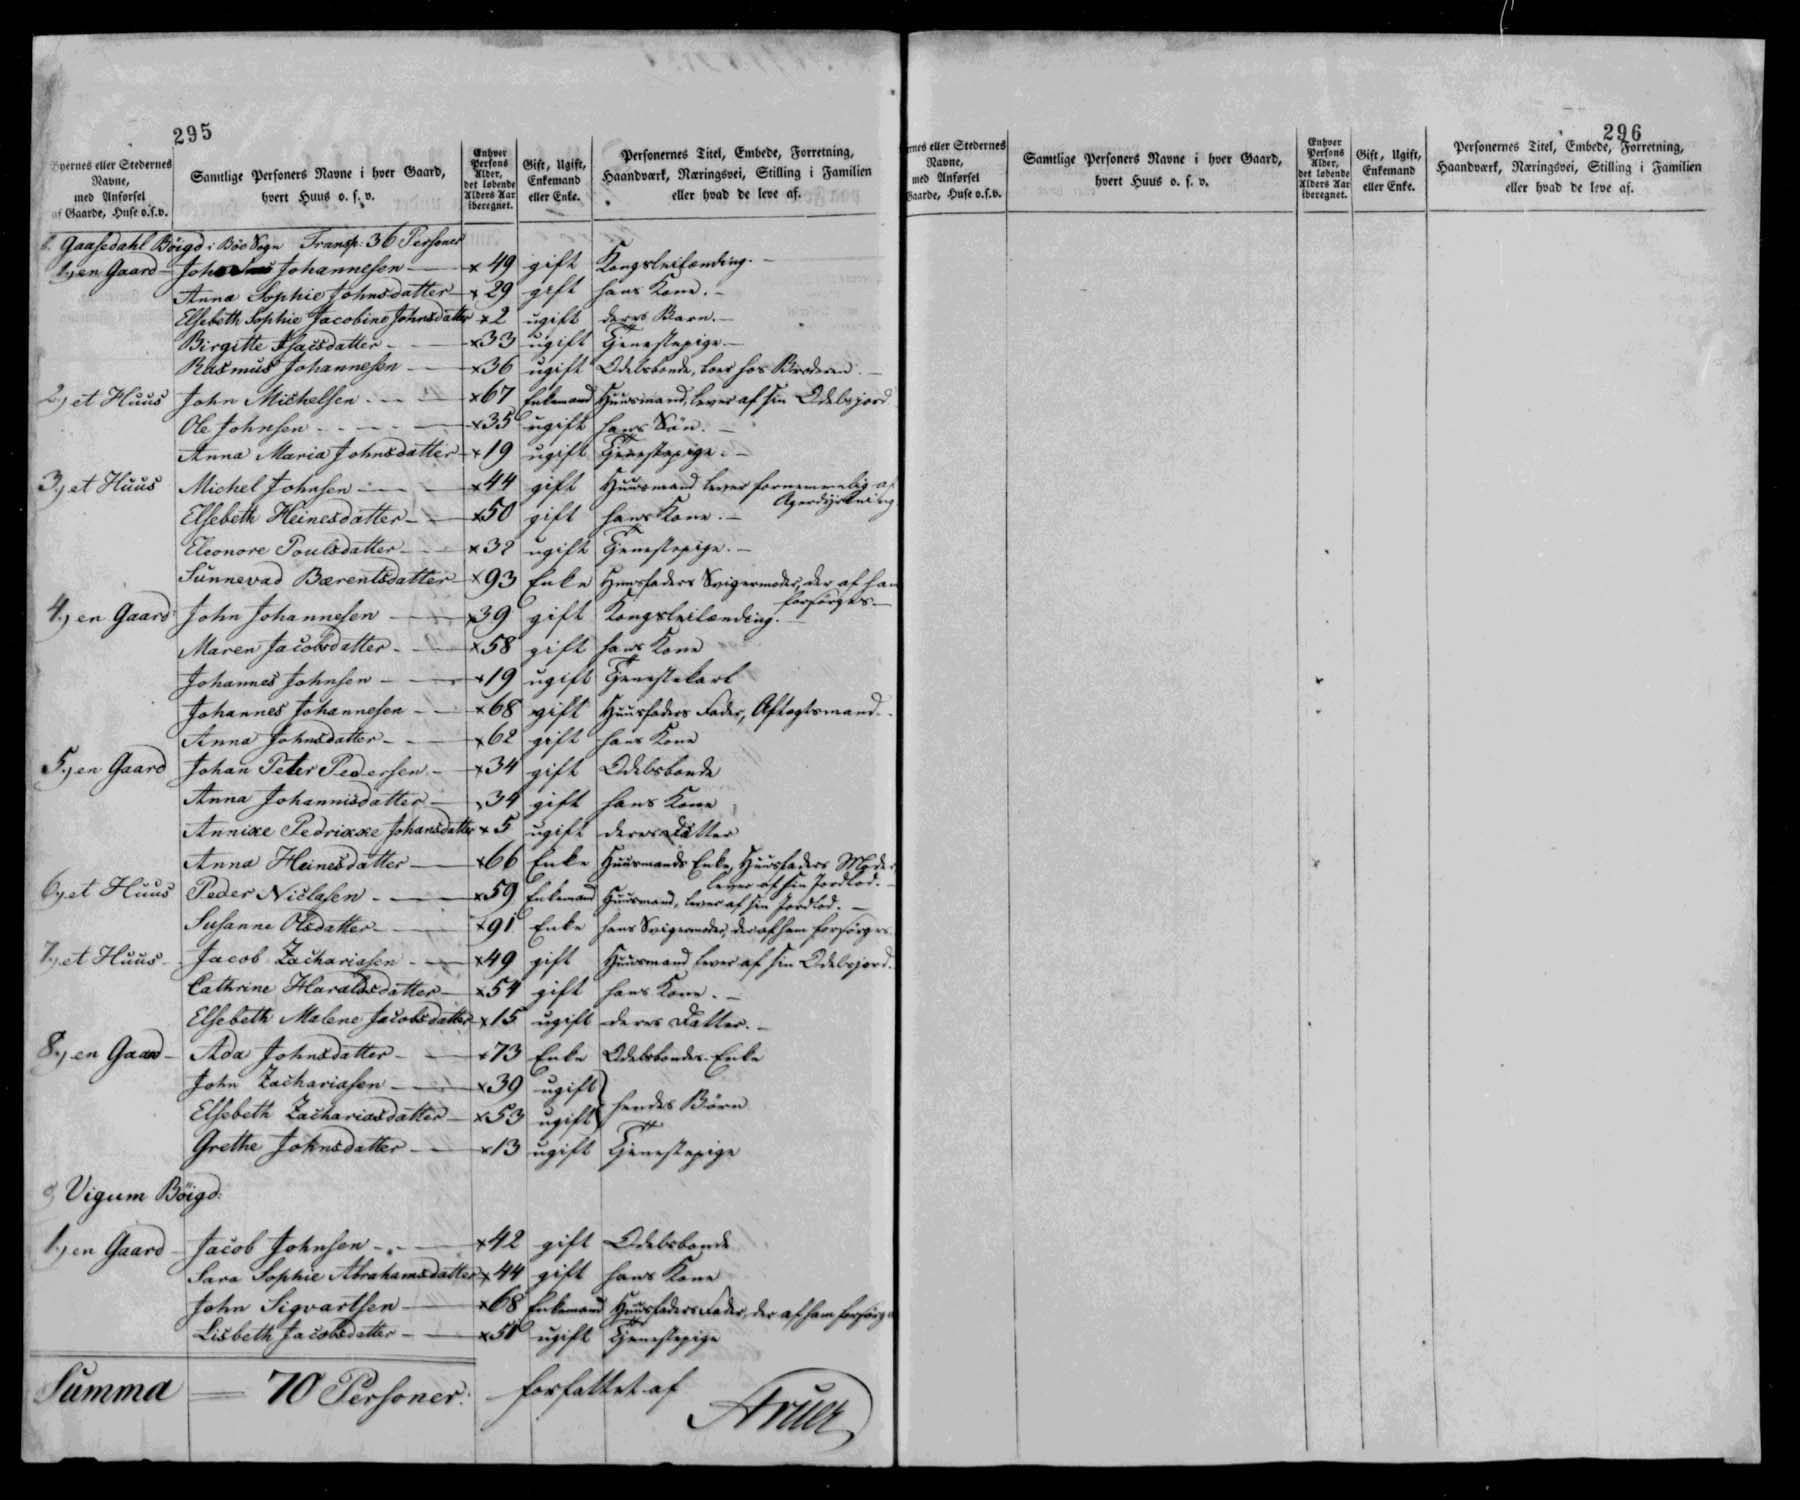 295
Byernes eller Stedernes Navne, med Anførsel af Gaarde, Huse o.s.v.
Samtlige Personers Navne i hver Gaard, hvert Huus o. s. v.
Enhver Persons Alder, det løbende Alders Aar iberegnet.
Gift, Ugift, Enkemand eller Enke.
Personernes Titel, Embede, Forretning, Haandværk, Næringsvei, Stilling i Familien eller hvad de leve af.
Gaasedahl Böigd i Böe Sogn Transp: 36 Personer
1, en Gaard Johannesen x 49 gift Kongsleilænding.
Anna Sophie Johnsdatter x 29 gift hans Kone.
Elsebeth Sophie Jacobine Johnsdatter x 2 ugift deres Barn.
Birgitte Isacsdatter x 33 ugift Tjenestepige.
Rasmus Johannesen x 36 ugift Odelsbonde, boer hos Broderen.
2, et Huus John Michelsen x 67 Enkemand Huusmand, lever af sin Odelsjord
Ole Johnsen x 35 ugift hans Sön.
Anna Maria Johnsdatter x 19 ugift Tjenestepige.
3, et Huus Michel Johnsen x 44 gift Huusmand lever fornemmelig af Agerdyrkning
Elsebeth Heinesdatter x 50 gift hans Kone.
Eleonore Poulsdatter x 32 ugift Tjenestepige.
Sunnevad Bærentsdatter x 93 Enke Huusfaders Svigermoder, der af ham forsörges
4, en Gaard John Johannesen x 39 gift Kongsleilænding.
Maren Jacobsdatter x 58 gift hans Kone
Johannes Johnsen x 19 ugift Tjenestekarl
Johannes Johannesen x 68 gift Huusfaders Fader, Aftægtsmand.
Anna Johnsdatter x 62 gift hans Kone
5, en Gaard Johan Peter Pedersen x 34 gift Odelsbonde
Anna Johannisdatter x 34 gift hans Kone
Annike Pedrikke Johansdatter x 5 ugift deres Datter
Anna Heinesdatter x 66 Enke Huusmands Enke, Huusfaders Moder, lever af sin Jordlod.
6, et Huus Peder Niclasen x 59 Enkemand Huusmand, lever af sin Jordlod.
Susanne Olsdatter x 91 Enke hans Svigermoder, der af ham forsörges
7, et Huus Jacob Zachariasen x 49 gift Huusmand lever af sin Odelsjord.
Cathrine Haraldsdatter x 54 gift hans Kone.
Elsebeth Malene Jacobsdatter x 15 ugift deres Datter.
8, en Gaard Ada Johnsdatter x 73 Enke Odelsbondes Enke
John Zachariasen x 39 ugift
Elsebeth Zachariasdatter x 53 ugift } hendes Börn
Grethe Johnsdatter x 13 ugift Tjenestepige
Vigum Böigd:
1, en Gaard Jacob Johnsen x 42 gift Odelsbonde
Sara Sophie Abrahamsdatter x 44 gift hans Kone
John Sigvartsen x 68 Enkemand Huusfaders Fader, der af ham forsörges
Lisbeth Jacobsdatter x 50 ugift Tjenestepige
Summa = 70 Personer. forfattet af
296
rnes eller Stedernes Navne, med Anførsel Gaarde, Huse o.s.v.
Samtlige Personers Navne i hver Gaard, hvert Huus o. s. v.
Enhver Persons Alder, det løbende Alders Aar iberegnet.
Gift, Ugift, Enkemand eller Enke.
Personernes Titel, Embede, Forretning, Haandværk, Næringsvei, Stilling i Familien eller hvad de leve af.